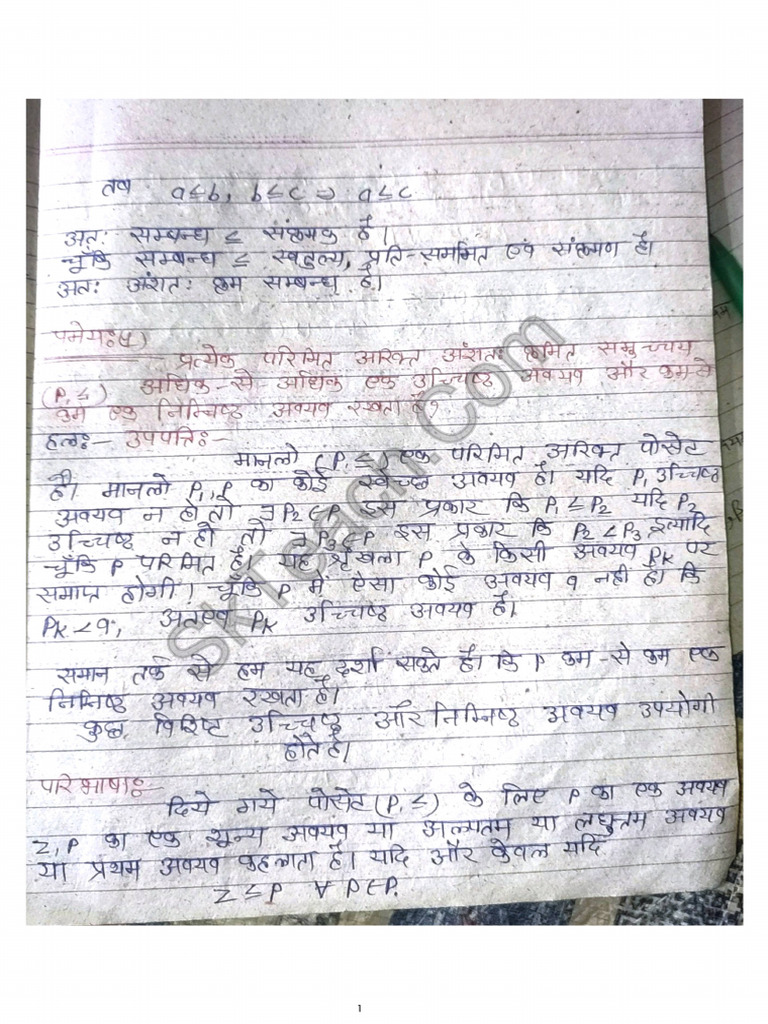 तब a ≤ b, b ≤ c ⇒ a ≤ c
अतः सम्बन्ध ≤ संक्रमक है।
चूँकि सम्बन्ध ≤ स्वतुल्य, प्रति-सममित एवं संक्रमण है।
अतः अंशतः क्रम सम्बन्ध है।
प्रत्येक परिमित अरिक्त अंशतः क्रमित समुच्चय
(P, ≤) अधिक-से अधिक एक उच्चिष्ठ अवयव और कम से
कम एक निम्निष्ठ अवयव रखता है?
हलः- उपपत्तिः-
मानलो (P, ≤) एक परिमित अरिक्त पोसेट
है। मानलो P₁, P का कोई स्वेच्छ अवयव है। यदि P₁ उच्चिष्ठ
अवयव न हो तो ∃ P₂ ∈ P इस प्रकार कि P₁ ≤ P₂ यदि P₂
उच्चिष्ठ न हो तो ∃ P₃ ∈ P इस प्रकार कि P₂ < P₃ इत्यादि
चूँकि P परिमित है। यह श्रृंखला P के किसी अवयव Pk पर
समाप्त होगी। चूँकि P में ऐसा कोई अवयव q नही है। कि
Pk < q, अतएव Pk उच्चिष्ठ अवयव है।
समान तर्क से हम यह दर्शा सकते है। कि P कम-से कम एक
निम्निष्ठ अवयव रखता है।
कुछ विशिष्ट उच्चिष्ठ और निम्निष्ठ अवयव उपयोगी
होते है।
परिभाषाः-
दिये गये पोसेट (P, ≤) के लिए P का एक अवयव
Z, P का एक शून्य अवयव या अल्पतम या लघुतम अवयव
या प्रथम अवयव कहलाता है। यदि और केवल यदि
Z ≤ P ∀ P ∈ P.
SkTeach.Com
1